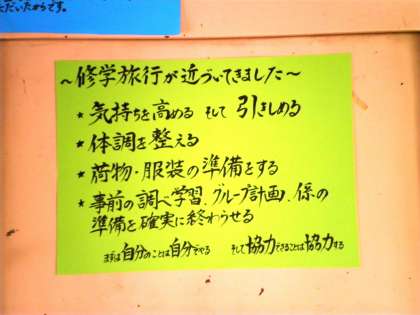 ただいたからです。
～修学旅行が近づいてきました～
★気持ちを高める そして 引きしめる
★体調を整える
★荷物・服装の準備をする
★事前の調べ学習、グループ計画、係の
準備を確実に終わらせる
まずは自分のことは自分でやる そして協力できることは協力する